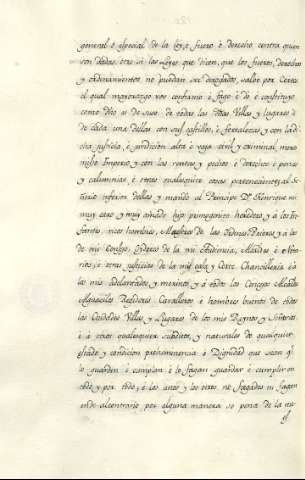 general o especial de la ley, o fuero o derecho contra quien
son dadas, otro si in las leyes que dicen, que los fueros, derechos
y ordenamientos no puedan ser derogados, salvo por Cortes
el qual mayorazgo vos confirmo é fago é dó é constituyo
como dho es de suso de todas las dhas Villas y Lugares é
de cada una dellas con sus castillos, é fortalezas y con la di-
cha justicia, é jurdicion alta é vaja civil y criminal mero
misto Imperio y con las rentas y pechos é derechos é penas
y calumnias, é otras qualesquier cosas pertenecientes al Se-
ñorio inferior dellas y mando al Principe Dn Henrrique mi
muy caro y muy amado hijo primogenito heredero y á los In-
fantes ricos hombres, Maestres de las Ordenes Priores y á los
de mi Consejo, Oydores de la mi Audiencia, Alcaldes é Nota-
rios, é otras justicias de la mi casa y Corte Chancilleria é á
los mis Adelantados, y merinos y á todos los Concejos Alcaldes
Alguaciles Regidores Cavalleros é hombres buenos de todas
las Ciudades Villas y Lugares de los mis Reynos y Señorios
é á otros qualesquiera subditos, y naturales de qualquier
estado y condicion preheminencia é Dignidad que sean qe
lo guarden é cumplan é lo fagan guardar é cumplir en
todo y por todo, é los unos y los otros no fagades ni fagan
ende al contrario por alguna manera so pena de la mi